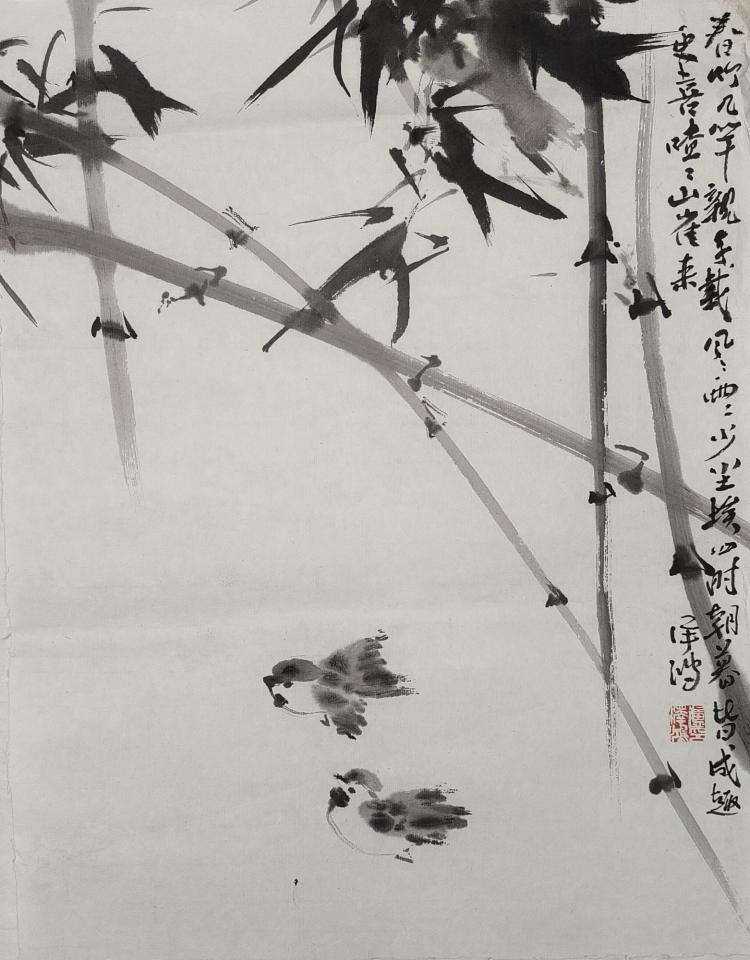 春竹几竿親手栽风〻雨〻少尘埃四时朝暮皆成趣
更喜喳〻山雀来